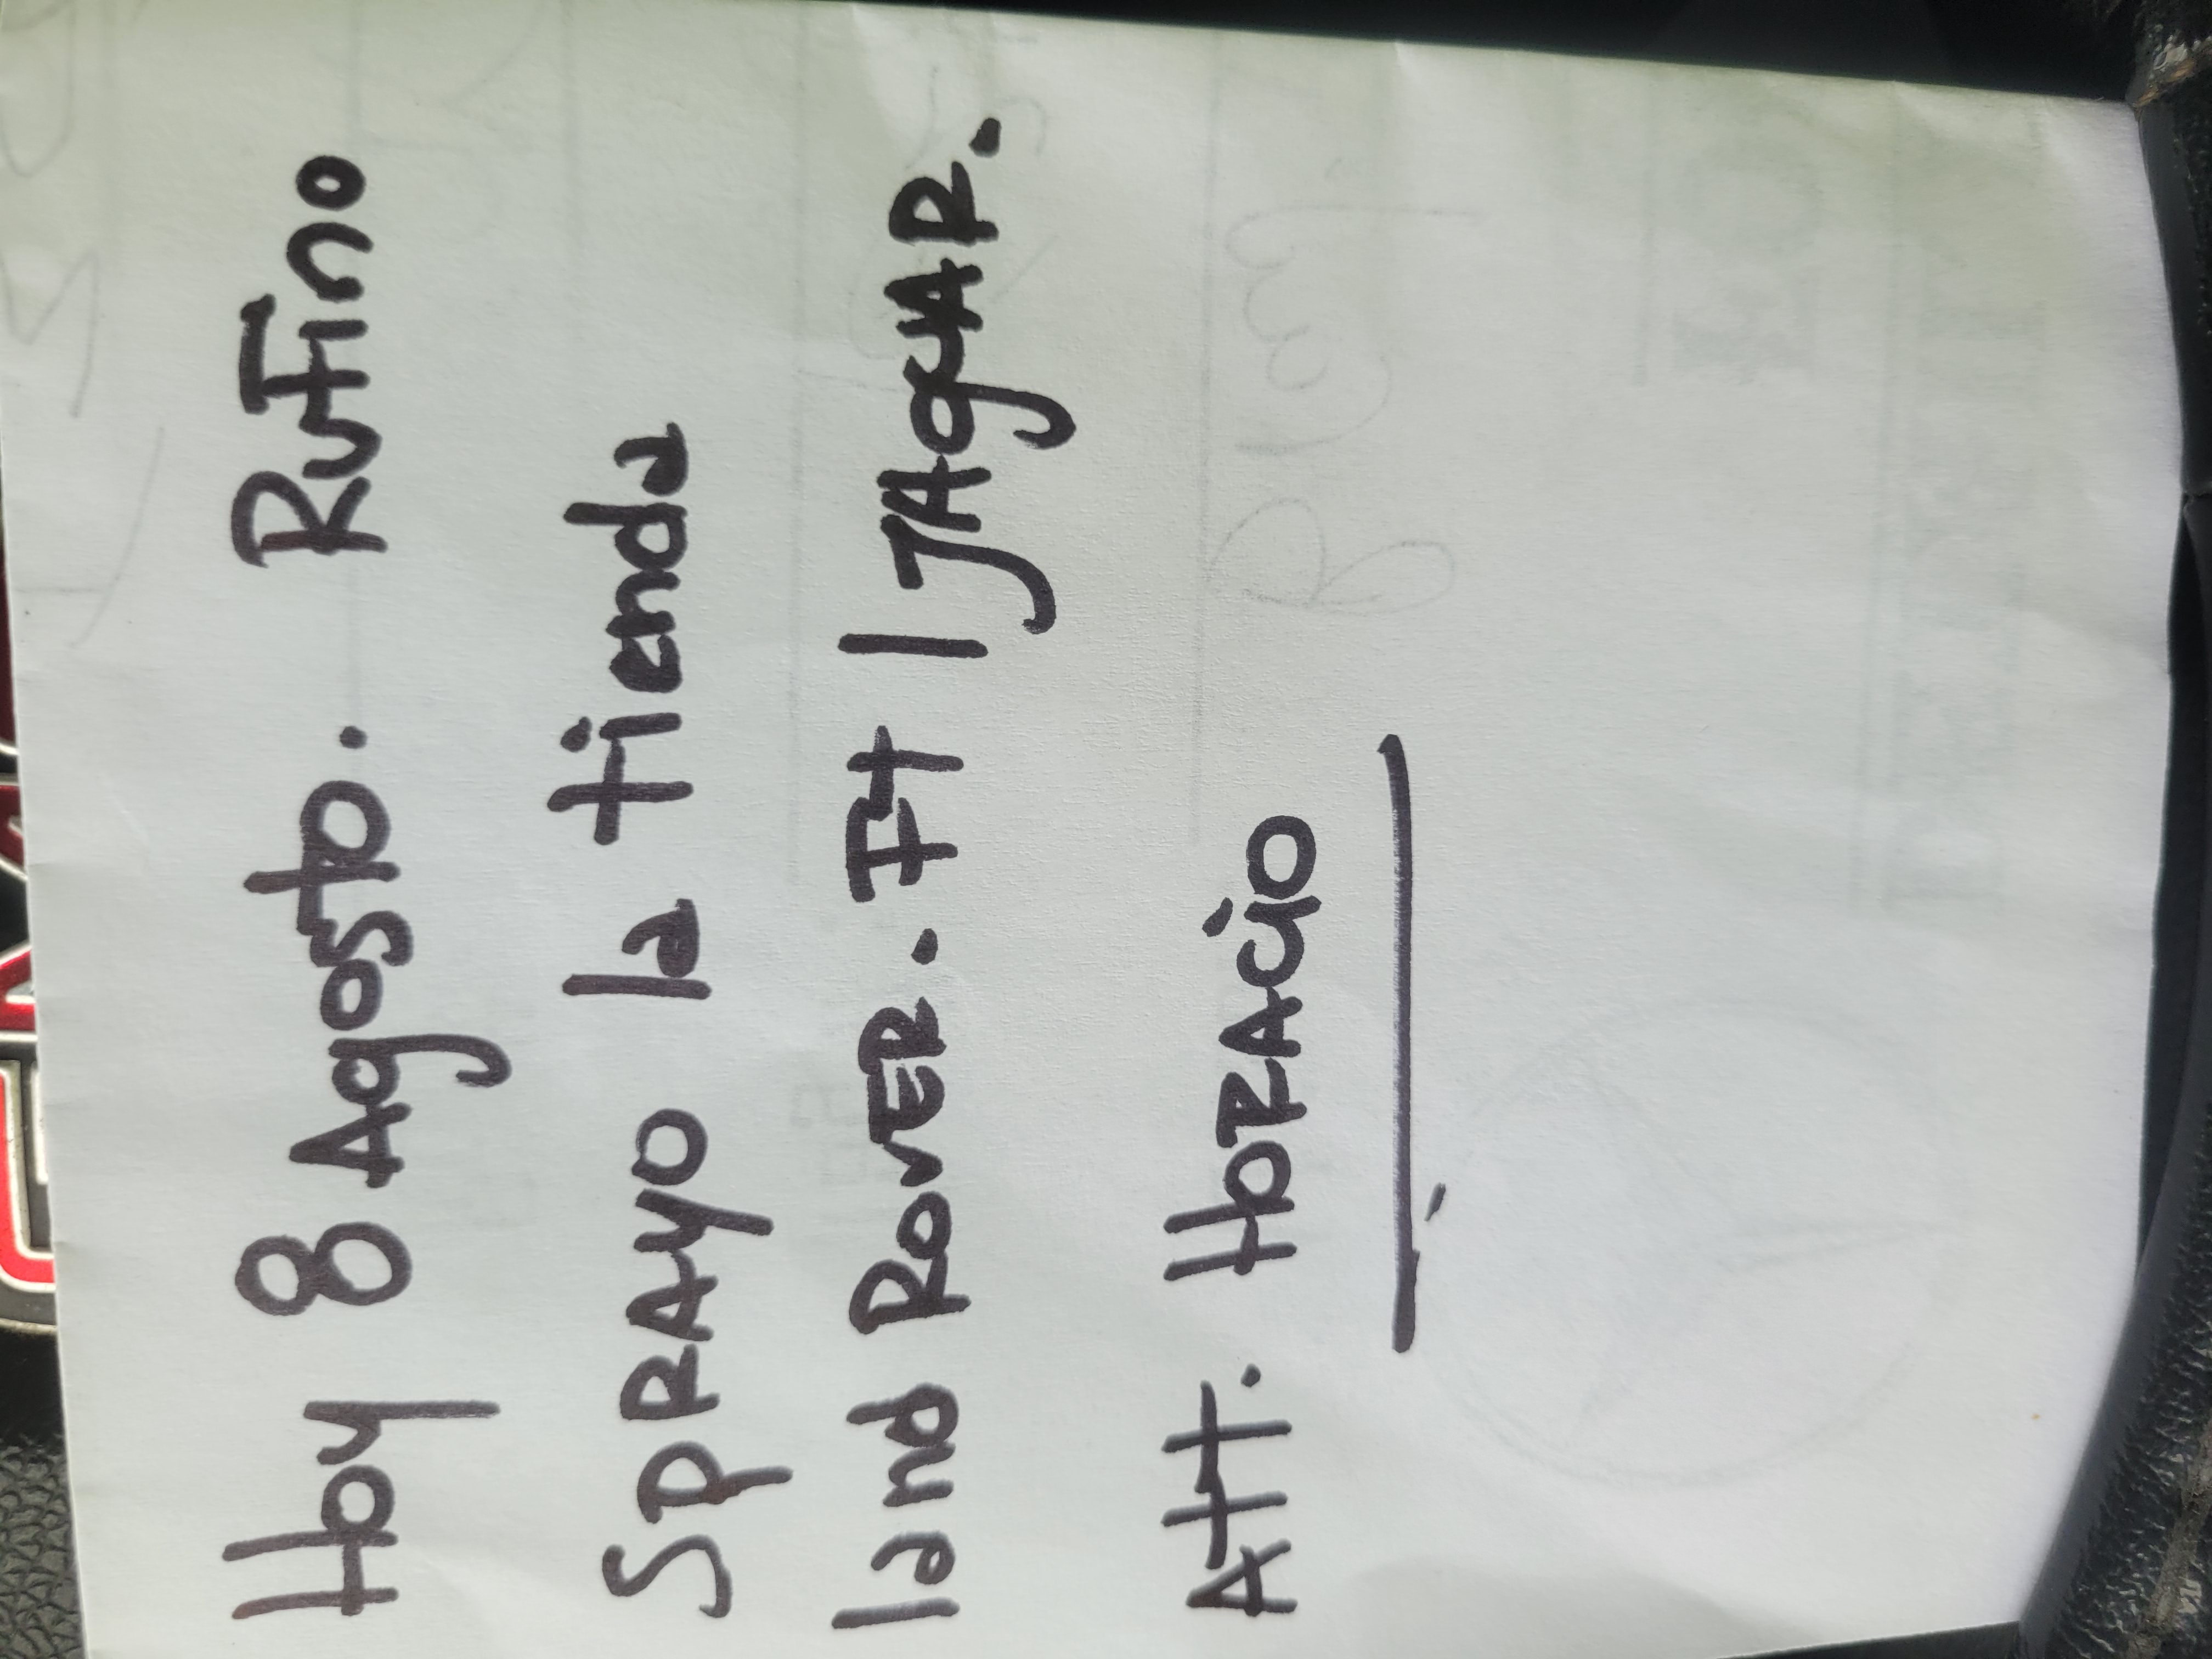 Hoy 8 Agosto. RuFino
SpRAyo la tienda
land RovER. Ft | JAguAR.
Att. HORACio